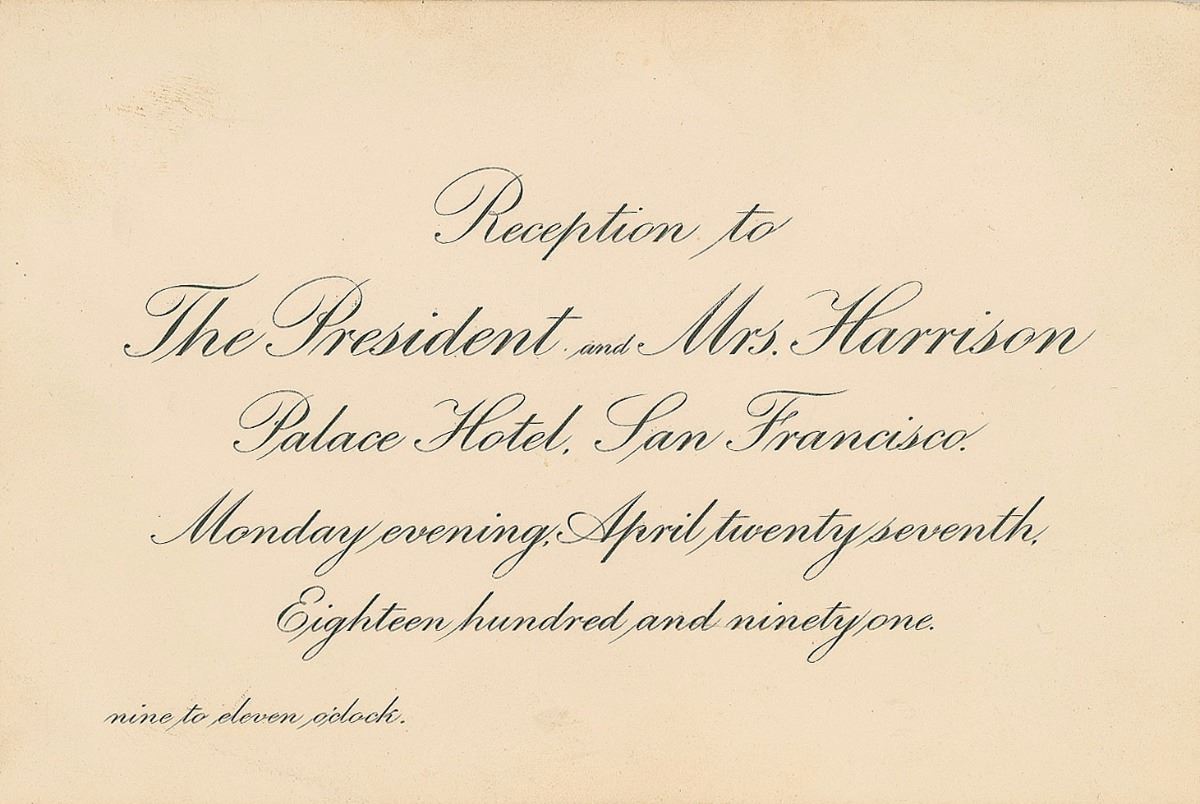 Reception to
The President and Mrs. Harrison
Palace Hotel, San Francisco.
Monday evening, April twenty seventh,
Eighteen hundred and ninety one.
nine to eleven o'clock.